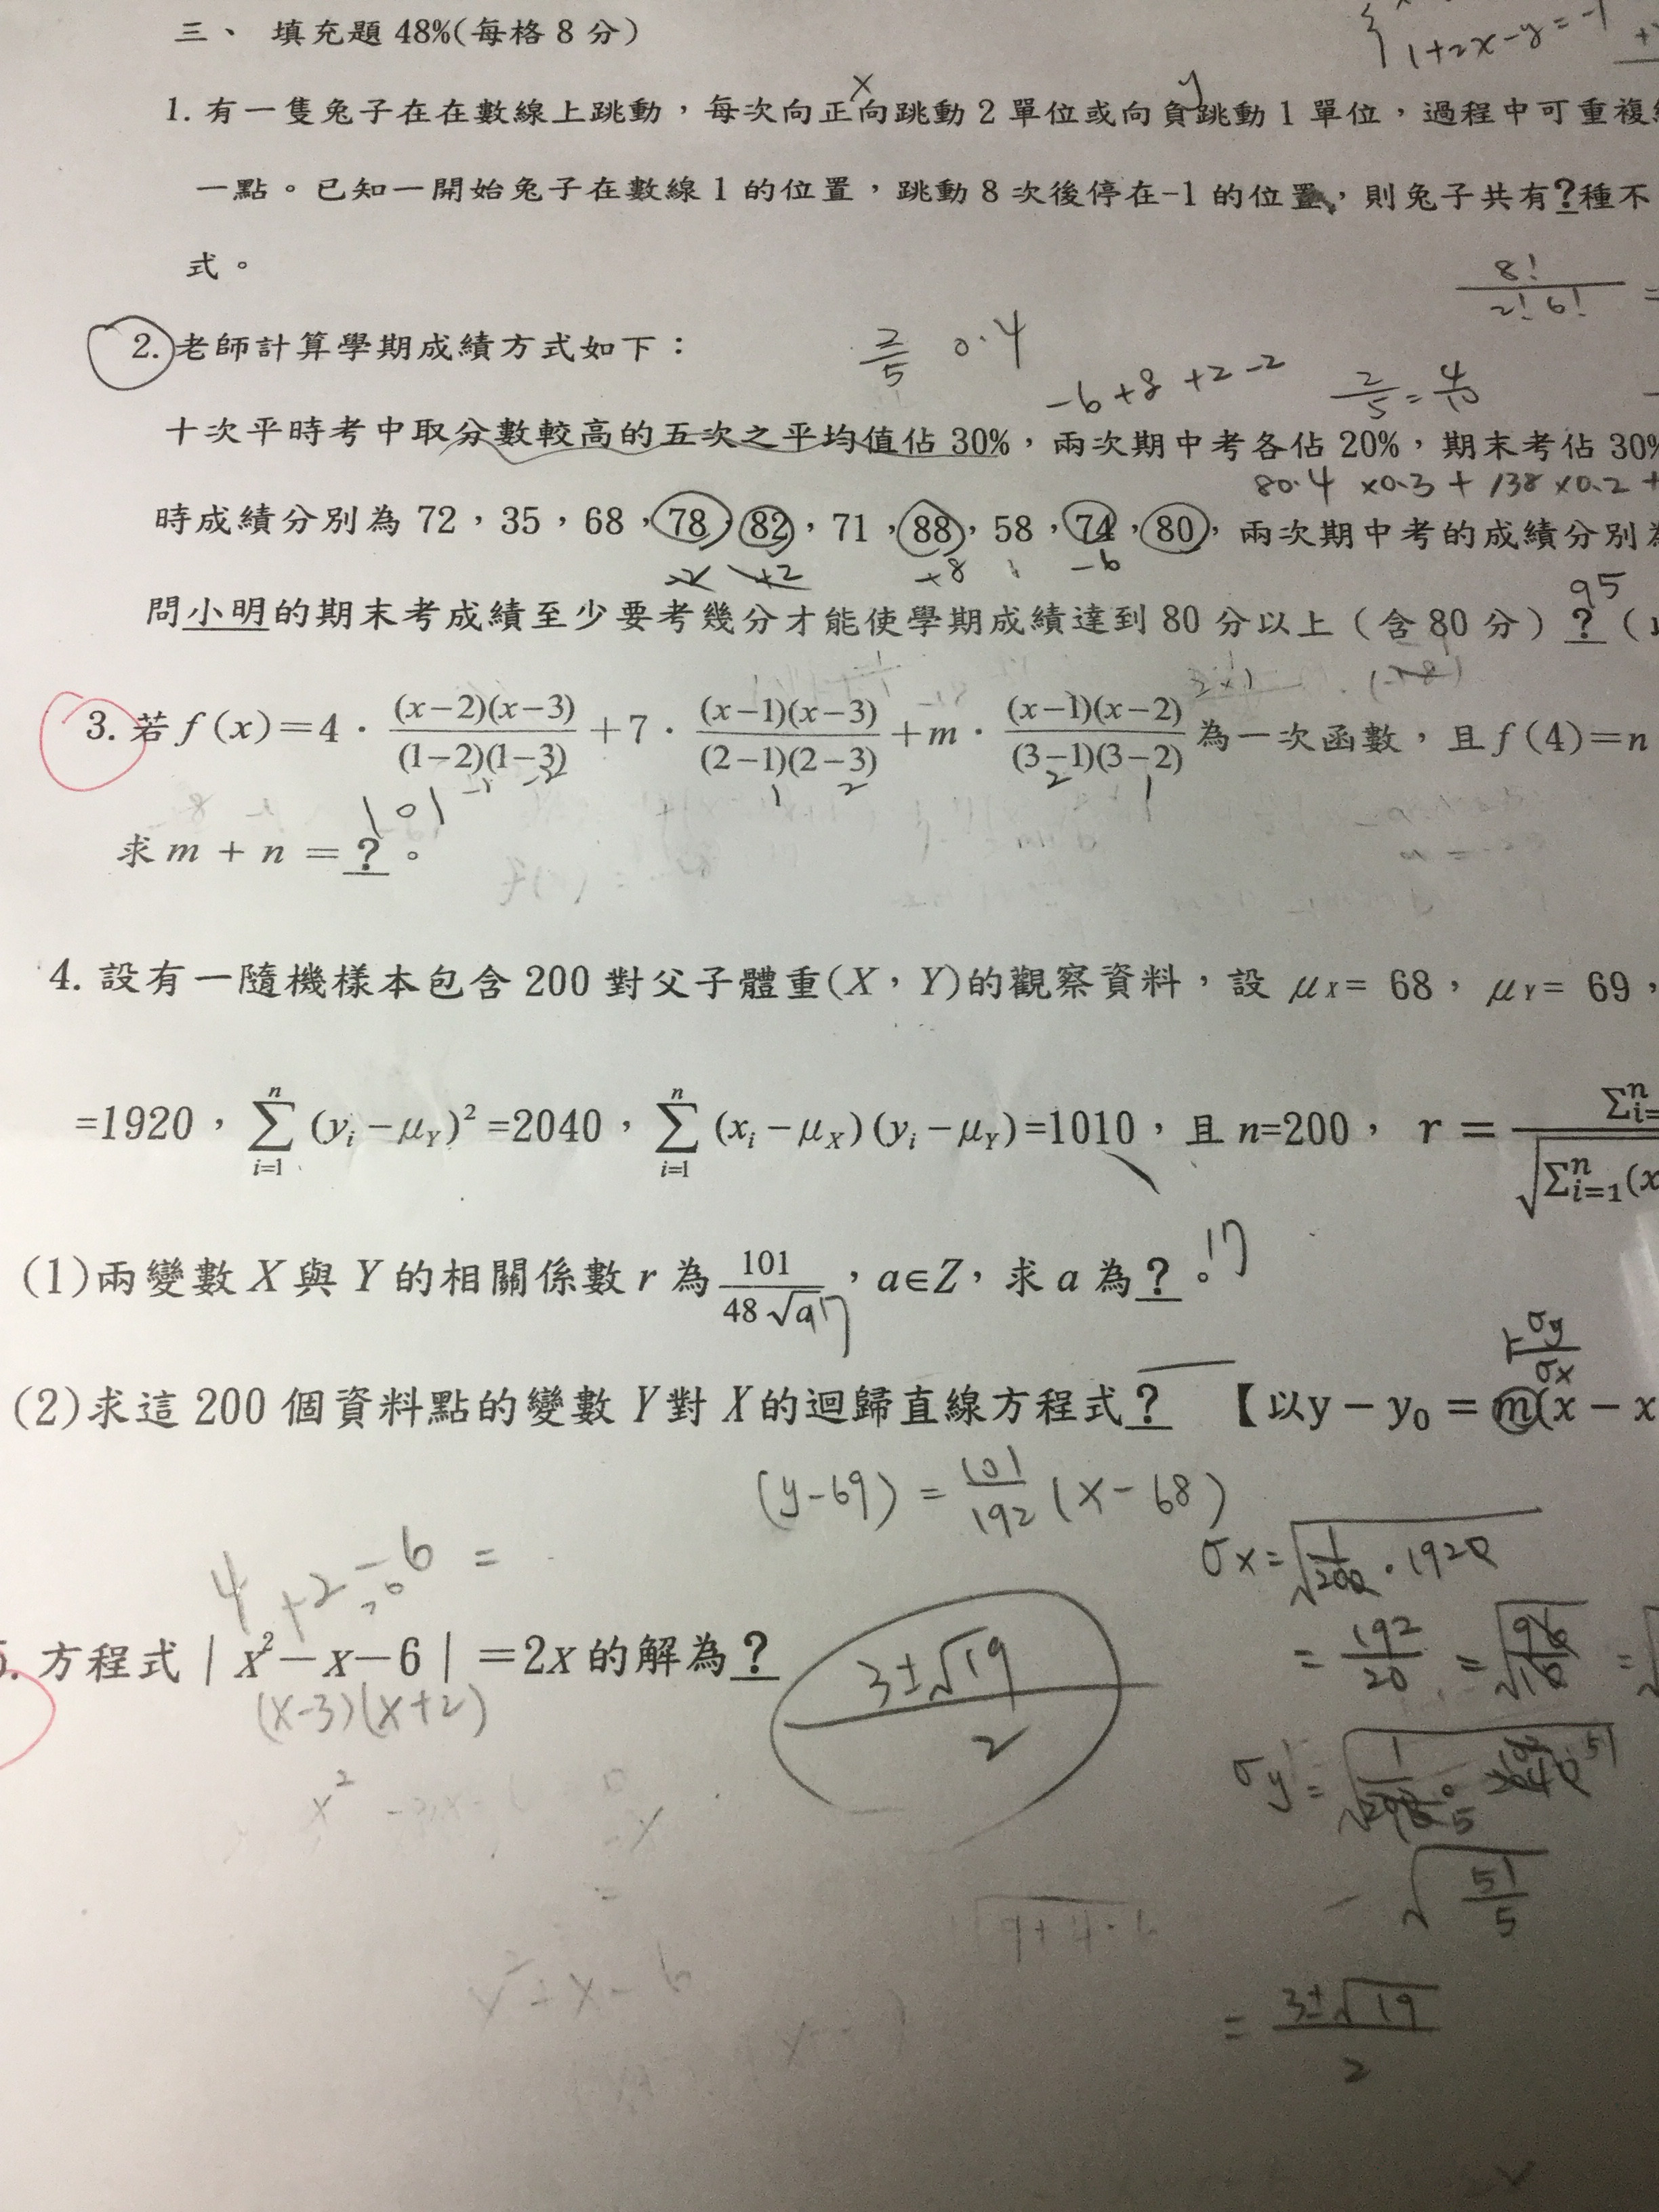 三、 填充題 48%(每格 8 分)
1+2x-y=-1
x y
1. 有一隻兔子在在數線上跳動，每次向正向跳動 2 單位或向負跳動 1 單位，過程中可重複
一點。已知一開始兔子在數線 1 的位置，跳動 8 次後停在-1 的位置，則兔子共有?種不
式。
8!/2!6! =
2. 老師計算學期成績方式如下：
2/5 0.4
-6+8+2-2
2/5=4/10
十次平時考中取分數較高的五次之平均值佔 30%，兩次期中考各佔 20%，期末考佔 30%
80.4 ×0.3 + 138 ×0.2 +
時成績分別為 72，35，68，78，82，71，88，58，74，80，兩次期中考的成績分別為
+2 +8 -6
95
問小明的期末考成績至少要考幾分才能使學期成績達到 80 分以上（含 80 分）?（
3. 若 f(x)=4·(x-2)(x-3)/(1-2)(1-3)+7·(x-1)(x-3)/(2-1)(2-3)+m·(x-1)(x-2)/(3-1)(3-2) 為一次函數，且 f(4)=n
101
求 m + n = ? 。
4. 設有一隨機樣本包含 200 對父子體重(X，Y)的觀察資料，設 μX= 68， μY= 69，
=1920，∑(i=1→n)(yi-μY)²=2040，∑(i=1→n)(xi-μX)(yi-μY)=1010，且 n=200， r=
(1)兩變數 X 與 Y 的相關係數 r 為 101/48√a，a∈Z，求 a 為?。17
17
r σy/σx
(2)求這 200 個資料點的變數 Y 對 X 的迴歸直線方程式? 【以y－y₀＝m(x－x
(y-69) = 101/192 (x-68)
σx=√(1/200·1920)
4+2-6 =
= 192/20 = √(96/10) =
5. 方程式｜x²-x-6｜=2x 的解為?
(x-3)(x+2)
3±√19/2
σy=
√(51/5)
= 3±√19/2